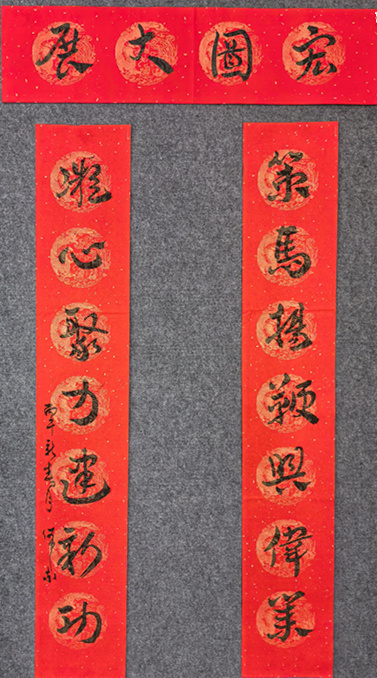 宏圖大展
策馬揚鞭興偉業
凝心聚力建新功
丙午新春月